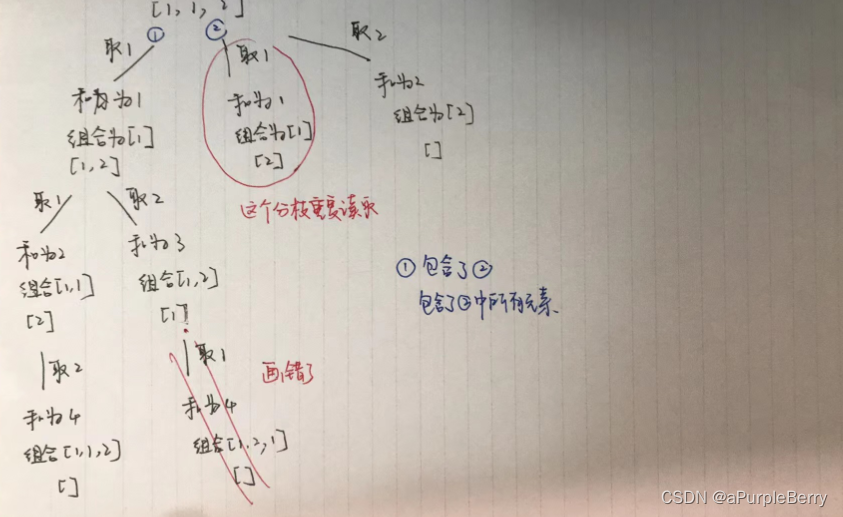 [1, 1, 2]
① ②
取1 取1 取2
和为1 和为1 和为2
组合为[1] 组合为[1] 组合为[2]
[1,2] [2] []
这个分枝重复读取
取1 取2
和为2 和为3
组合[1,1] 组合[1,2]
[2] [1]
①包含了②
包含了②中所有元素.
取2 取1
画错了
和为4 和为4
组合[1,1,2] 组合[1,2,1]
[] []
CSDN @aPurpleBerry